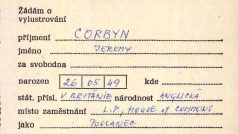 Žádám o
vylustrování
příjmení CORBYN
jméno JEREMY
za svobodna
narozen 26 05 49 kde
stát. přísl. V. BRITÁNIE národnost ANGLICKÁ
místo zaměstnání L.P., HOUSE of COMMONS
jako POSLANEC